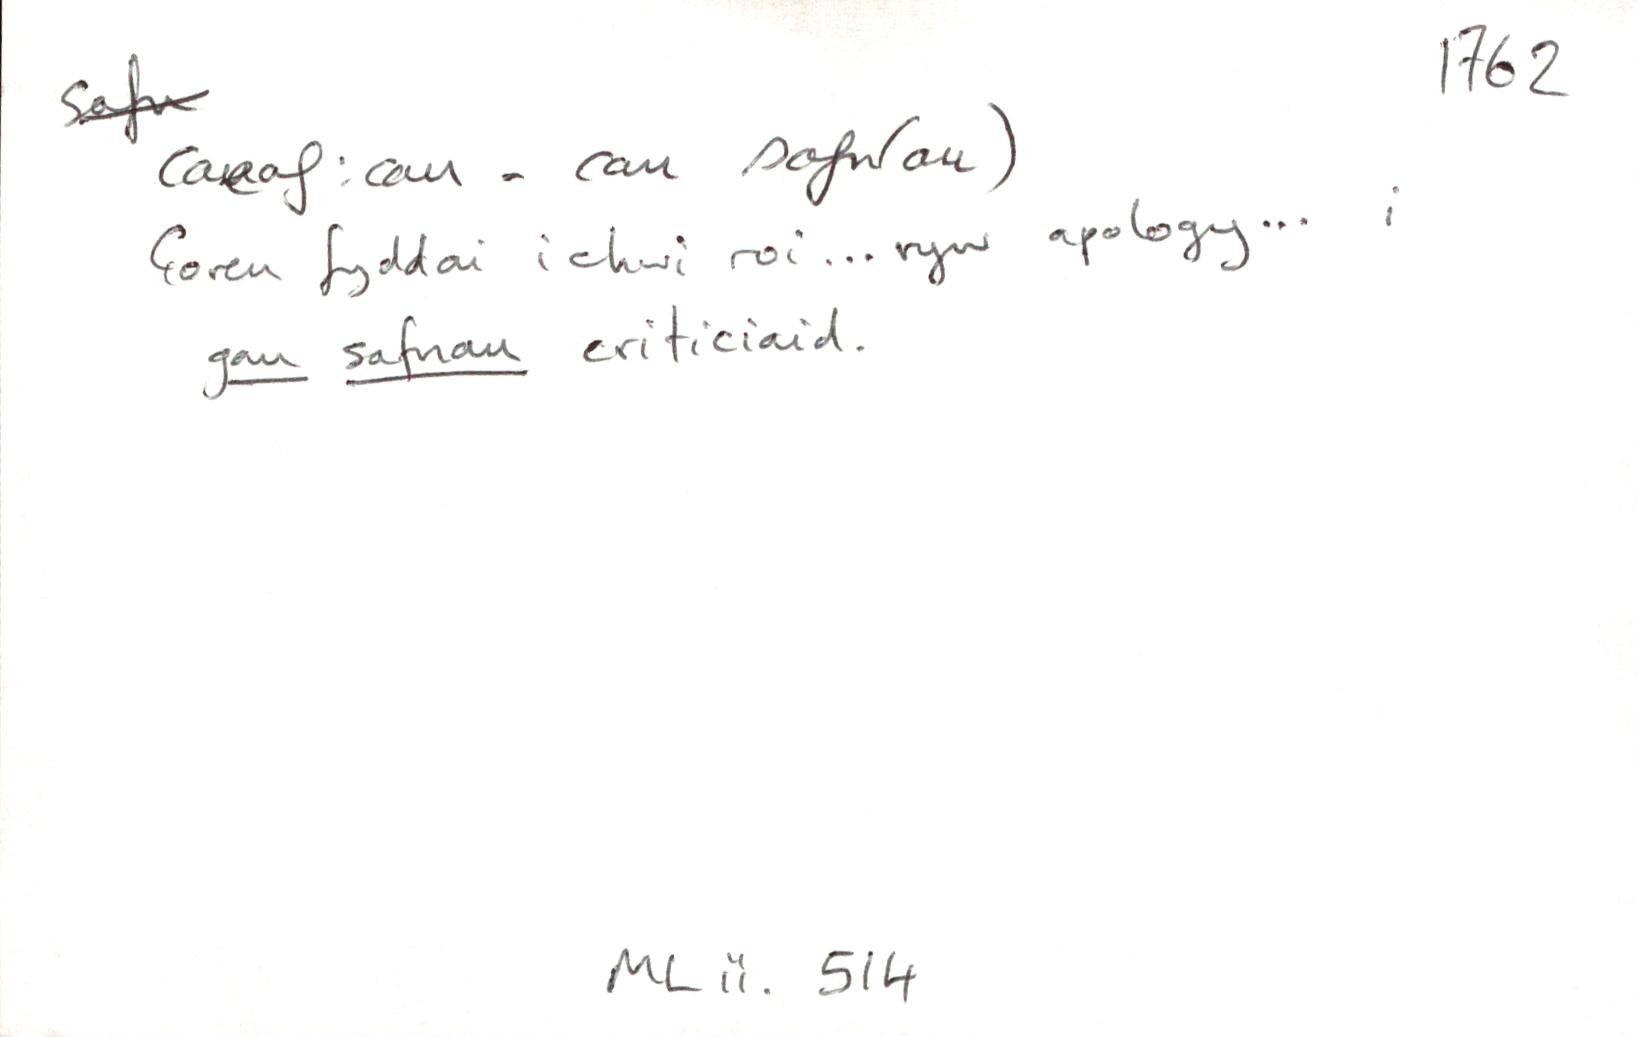 1762
safn
caeaf: cau - cau safn(au)
Goreu fyddai ichwi roi... ryw apology... i
gau safnau criticiaid.
ML ii. 514